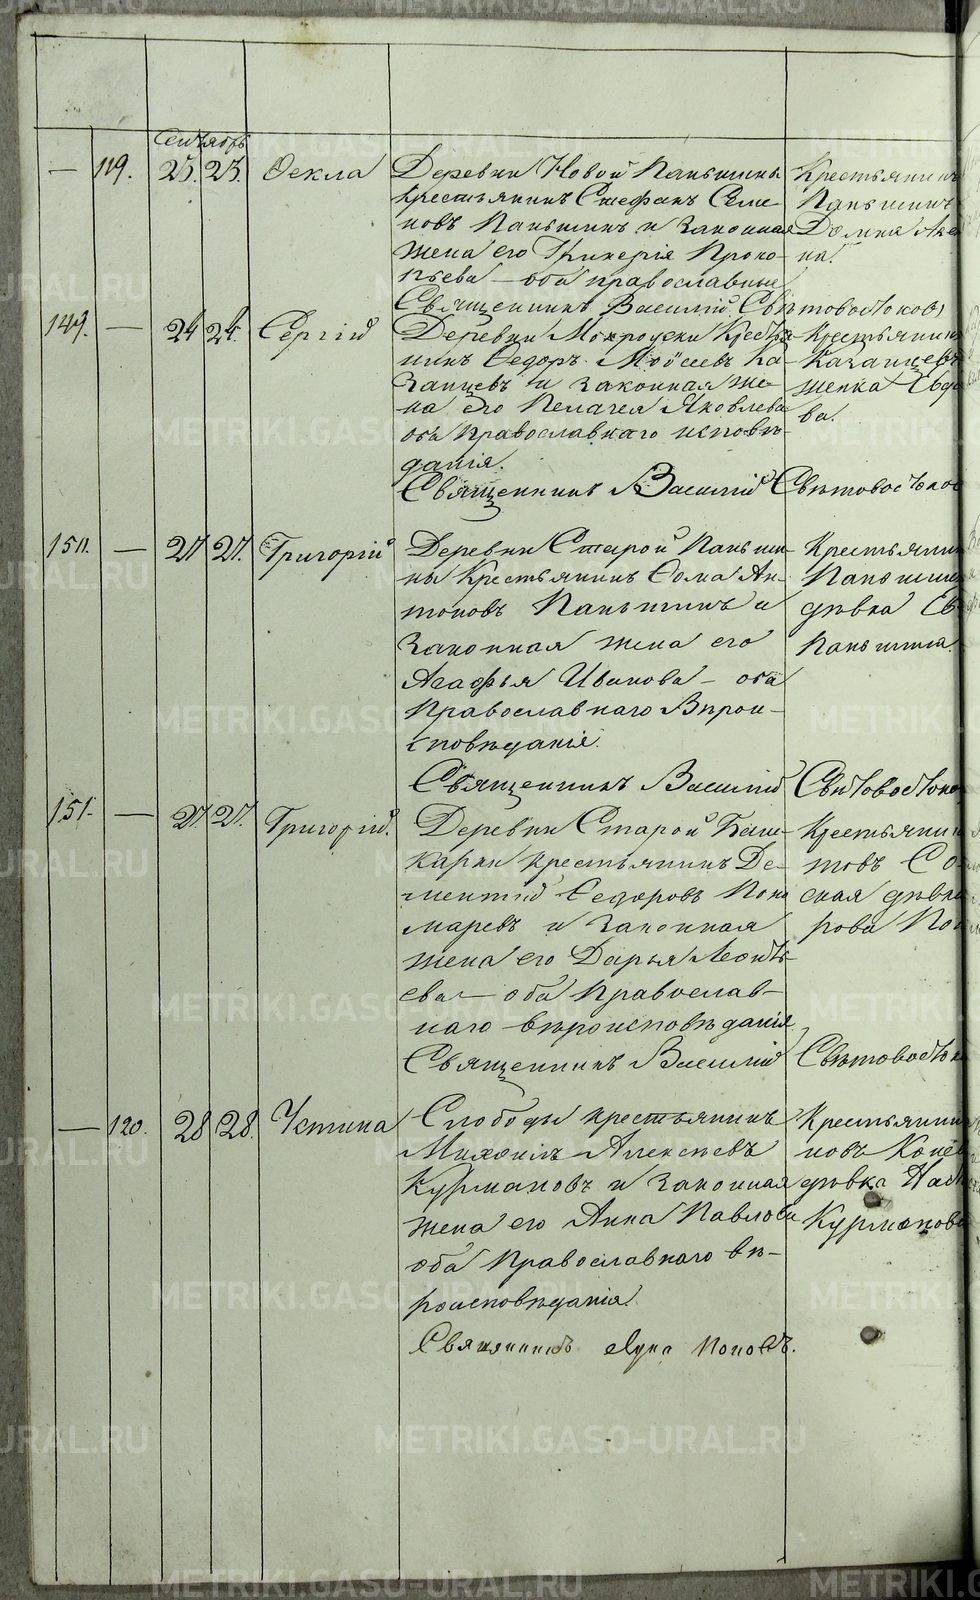 Сентябрь
— 119. 23. 23. Ѳекла Деревни Новой Паньшины
крестьянинъ Стефанъ Семе-
новъ Паньшинъ и законная
жена его Гликерія Проко-
пьева — оба православные
Священникъ Василій Свѣтовостоковъ
Крестьянинъ
Паньшинъ
Домна
на.
149. — 24 24. Сергій Деревни Мокроуски Кресть-
нинъ Ѳедоръ Моѵсеевъ Ка-
занцевъ и законная же-
на его Пелагея Яковлева
оба православнаго исповѣ-
данія.
Священникъ Василій Свѣтовостоков
Крестьянин
Казанцевъ
женка
ва.
150. — 27 27. Григорій Деревни Старой Паньши-
ны Крестьянинъ Ѳома Ан-
тоновъ Паньшинъ и
законная жена его
Агафья Иванова — оба
Православнаго Вѣрои-
сповѣданія.
Священникъ Василій Свѣтовостоко
Крестьянин
Паньшин
дѣвка
Паньшина.
151. — 27. 27. Григорій. Деревни Старой Баше-
карки крестьянинъ Де-
ментій Ѳедоровъ Поно
маревъ и законная
жена его Дарья Леонть-
ева — оба Православ-
наго вѣроисповѣданія
Священникъ Василій Свѣтовосток
Крестьянин
товъ Со
ская дѣвка
рова По
— 120. 28 28. Устина Слободы крестьянинъ
Михаилъ Алексѣевъ
Курмановъ и законная
жена его Анна Павлова
оба Православнаго вѣ-
роисповѣданія.
Священникъ Лука Поповъ.
Крестьянин
новъ
дѣвка Нас
Курманова
METRIKI.GASO-URAL.RU